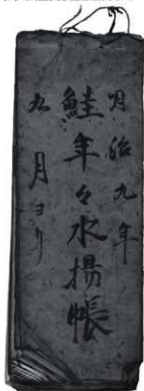 明治九年
鮭年々水揚帳
九月ヨリ